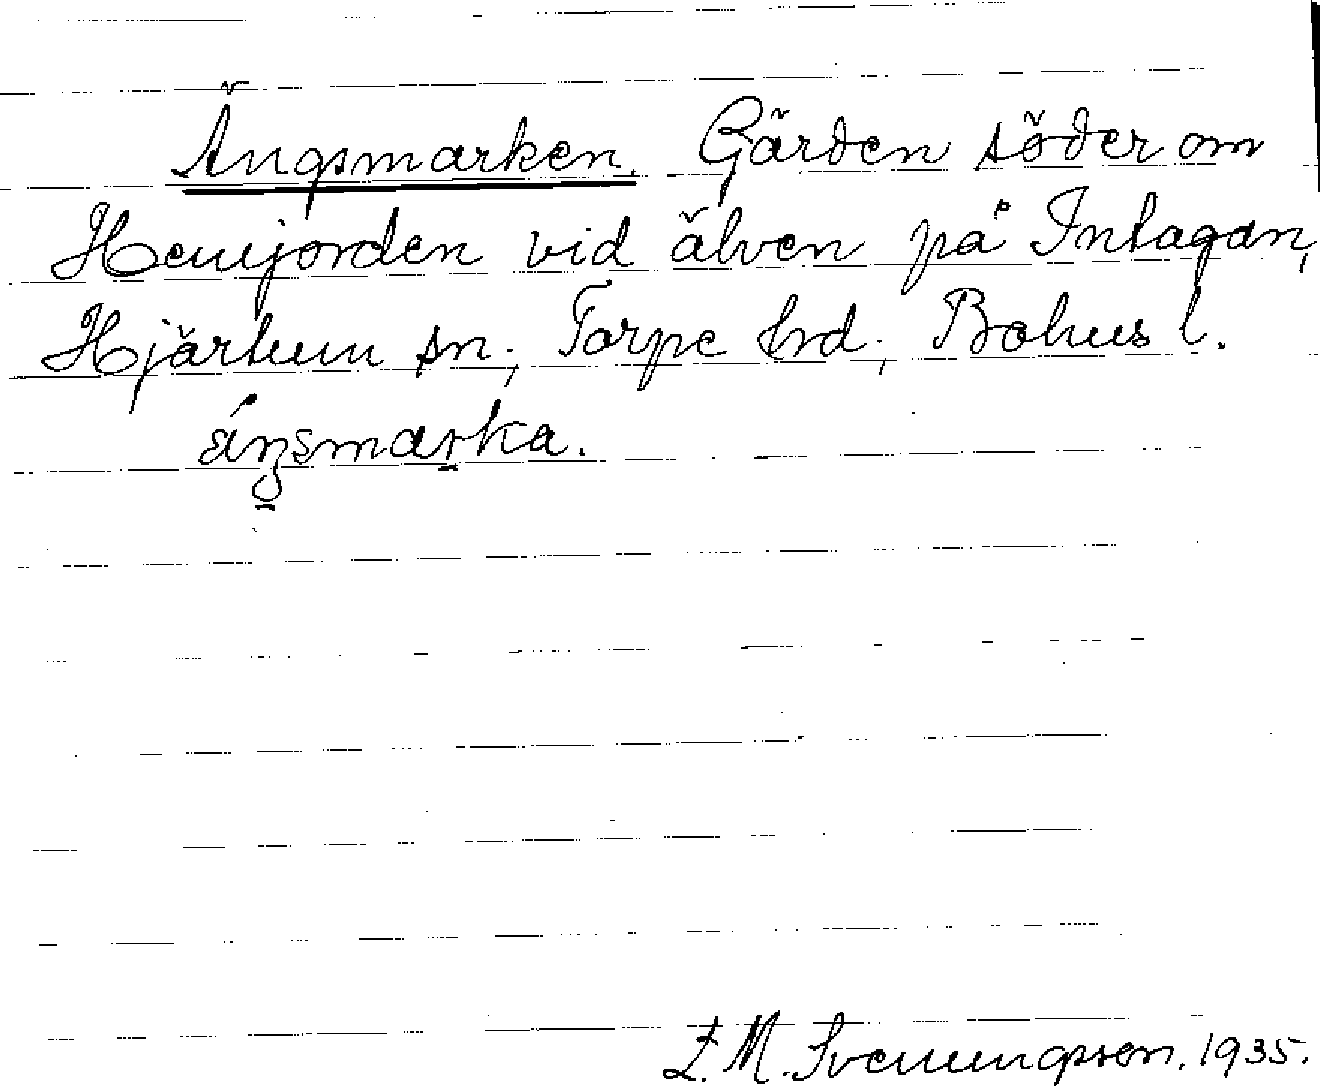 Ängsmarken. Gärden söder om
Hemjorden vid älven på Intagan,
Hjärtum sn, Torpe hrd, Bohus l.
áŋsmarka.
Z. M. Svenungsson. 1935.